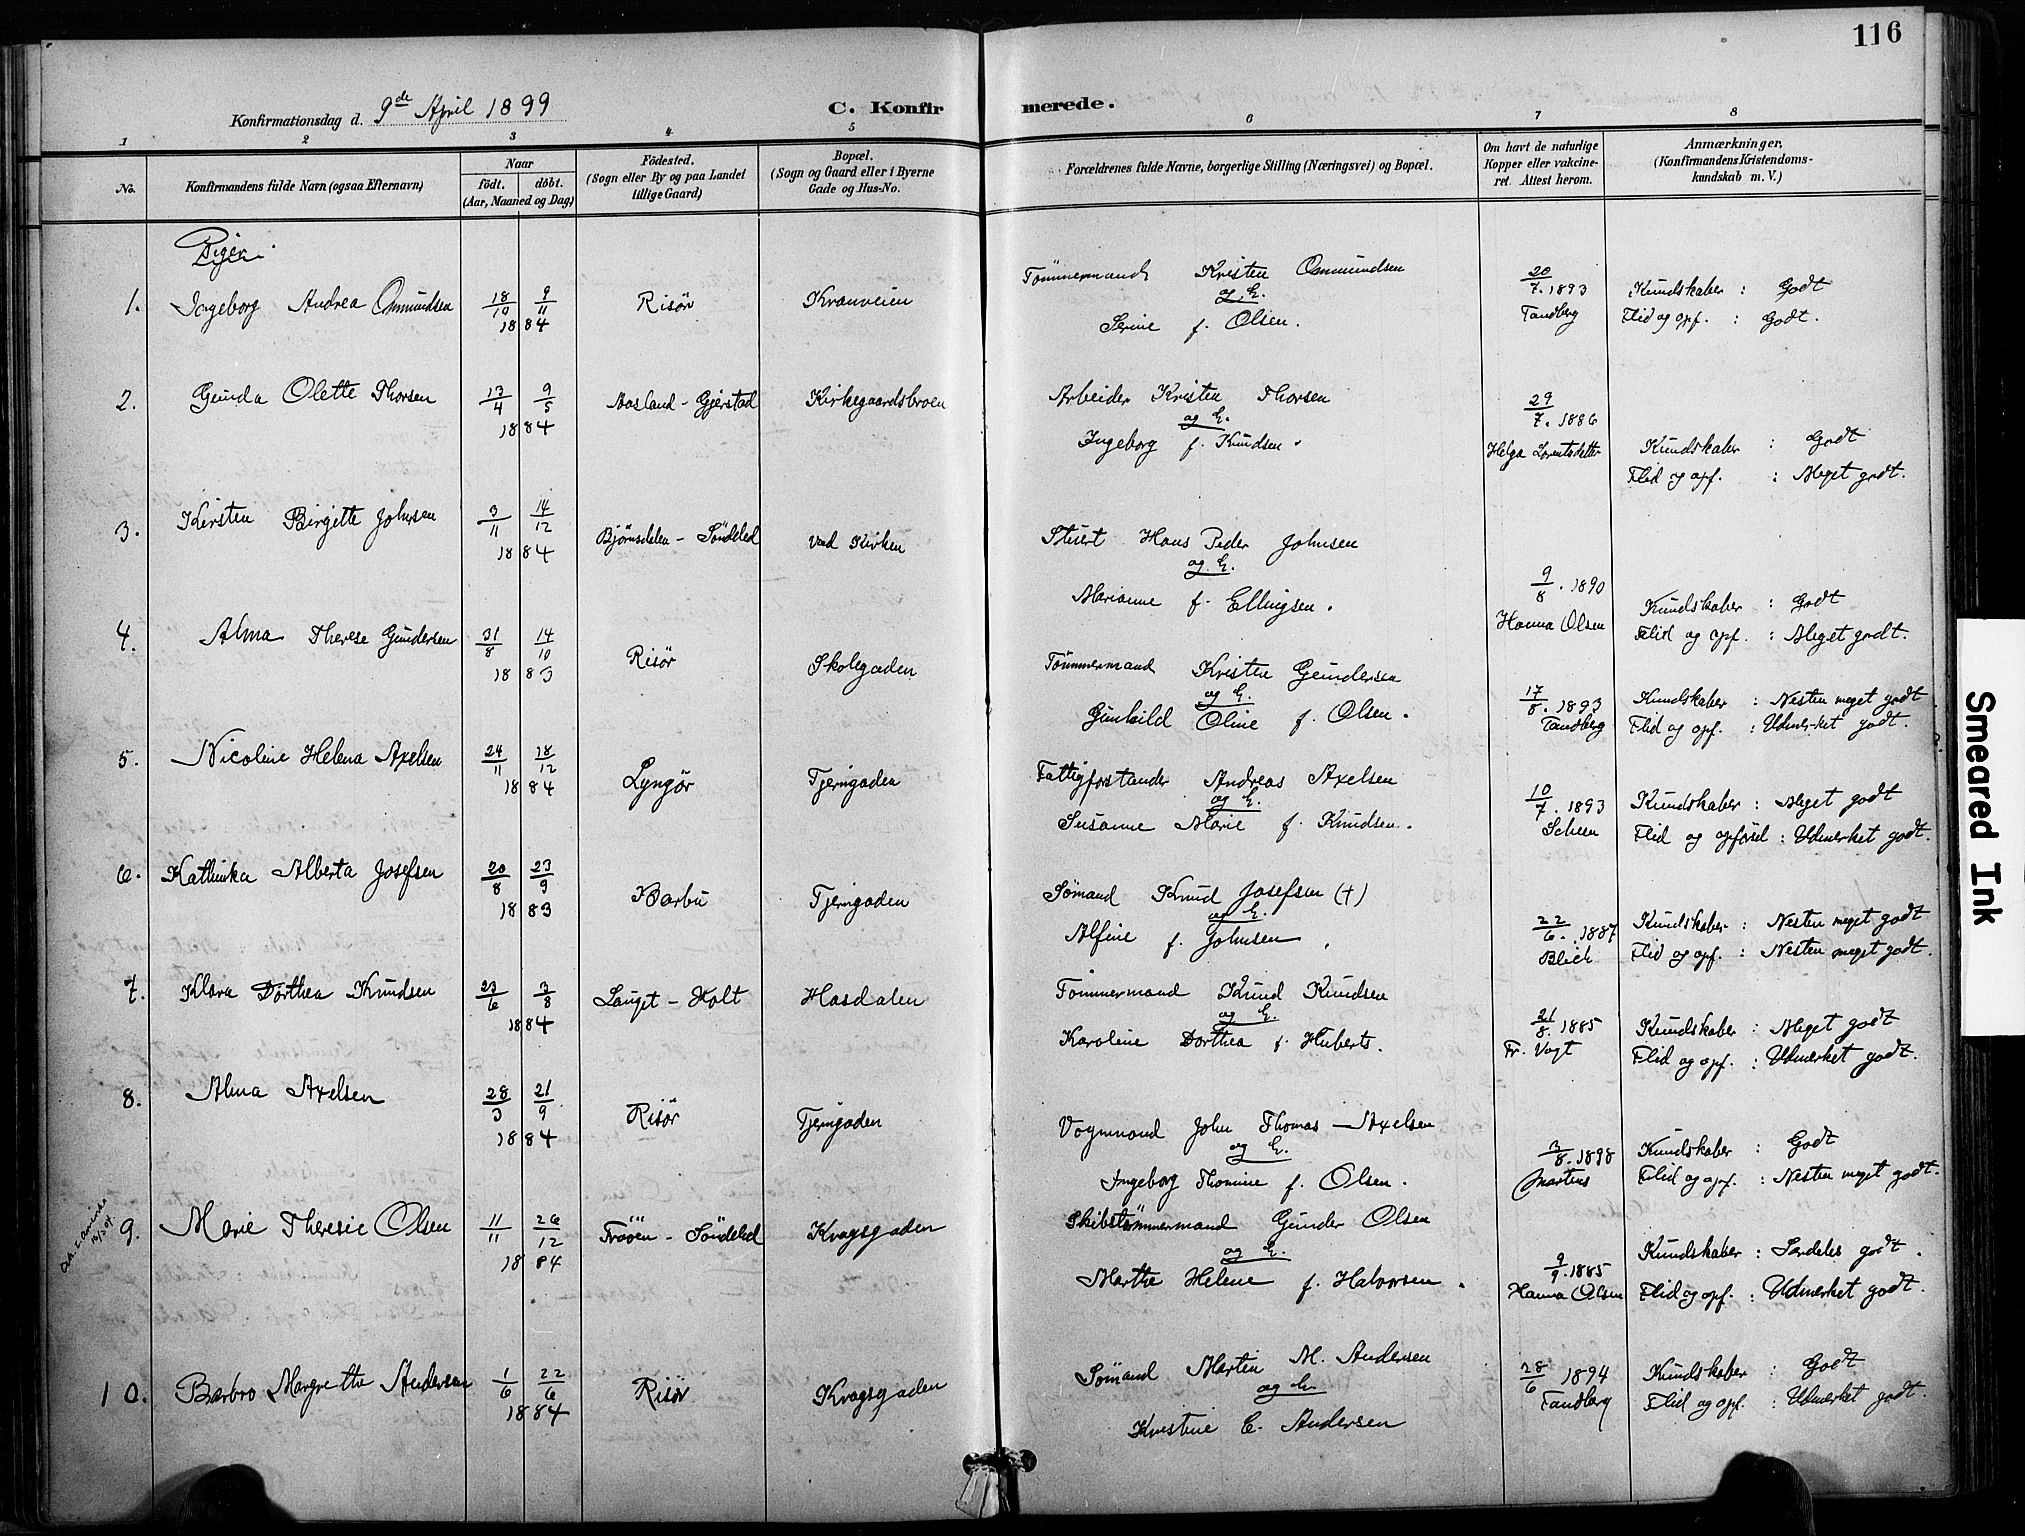 116
Konfirmationsdag d. 9de April 1899
C. Konfirmerede.
1 2 3 4 5 6 7 8
No.
Konfirmandens fulde Navn (ogsaa Efternavn)
Naar
født. døbt.
(Aar, Maaned og Dag)
Fødested.
(Sogn eller By og paa Landet
tillige Gaard)
Bopæl.
(Sogn og Gaard eller i Byerne
Gade og Hus-No.
Forældrenes fulde Navne, borgerlige Stilling (Næringsvei) og Bopæl.
Om havt de naturlige
Kopper eller vakcine-
ret. Attest herom.
Anmærkninger,
(Konfirmandens Kristendoms-
kundskab m. V.)
Piger.
1. Ingeborg Andrea Osmundsen 18/10 9/11 1884 Risør Kranveien
Tømmermand Kristen Osmundsen
og E.
Serine f. Olsen.
20/7. 1893
Tandberg
Kundskaber : Godt
Flid og opf. : Godt.
2. Gunda Olette Thorsen 13/4 9/5 1884 Aasland - Gjerstad Kirkegaardsbroen
Arbeider Kristen Thorsen
og E.
Ingeborg f. Knudsen.
29/7. 1886
Helga Lorentsdatter
Kundskaber : Godt
Flid og opf. : Meget godt.
3. Kirsten Birgitte Johnsen 3/11 14/12 1884 Bjørnsdalen - Søndeled Ved Kirken
Stuert Hans Peder Johnsen
og E.
Marianne f. Ellingsen.
9/8. 1890
Hanna Olsen
Kundskaber : Godt
Flid og opf. : Meget godt.
4. Alma Therese Gundersen 31/8 14/10 1883 Risør Skolegaden
Tømmermand Kristen Gundersen
og E.
Gunhild Oline f. Olsen.
17/8. 1893
Tandberg
Kundskaber : Nesten meget godt
Flid og opf. : Udmerket godt.
5. Nicoline Helena Axelsen 24/11 18/12 1884 Lyngør Tjerngaden
Fattigforstander Andreas Axelsen
og E.
Susanne Marie f. Knudsen.
10/7. 1893
Scheen
Kundskaber : Meget godt
Flid og opførsel : Udmerket godt.
6. Kathinka Alberta Josefsen 20/8 23/9 1883 Barbu Tjerngaden
Sømand Knud Josefsen (+)
og E.
Alfine f. Johnsen
22/6. 1887
Blich
Kundskaber : Nesten meget godt
Flid og opf. : Nesten meget godt.
7. Klara Dorthea Knudsen 23/6 3/8 1884 Lauget - Holt Hasdalen
Tømmermand Knud Knudsen
og E.
Karoline Dorthea f. Huberts.
21/8. 1885
Fr. Vogt
Kundskaber : Meget godt
Flid og opf. : Udmerket godt.
8. Alma Axelsen 28/3 21/9 1884 Risør Tjerngaden
Vognmand John Thomas Axelsen
og E.
Ingeborg Thomine f. Olsen.
3/8. 1898
Martens
Kundskaber : Godt
Flid og opf. : Nesten meget godt.
9. Marie Theresie Olsen 11/11 26/12 1884 Trøen - Søndeled Kragsgaden
Skibstømmermand Gunder Olsen
og E.
Marthe Helene f. Halvorsen.
9/9. 1885
Hanna Olsen
Kundskaber : Serdeles godt.
Flid og opf. : Udmerket godt.
10. Barbro Margrethe Andersen 1/6 22/6 1884 Risør Kragsgaden
Sømand Martin M. Andersen
og E.
Kristine E. Andersen
28/6 1894
Tandberg
Kundskaber : Godt
Flid og opf. : Udmerket godt.
Smeared Ink